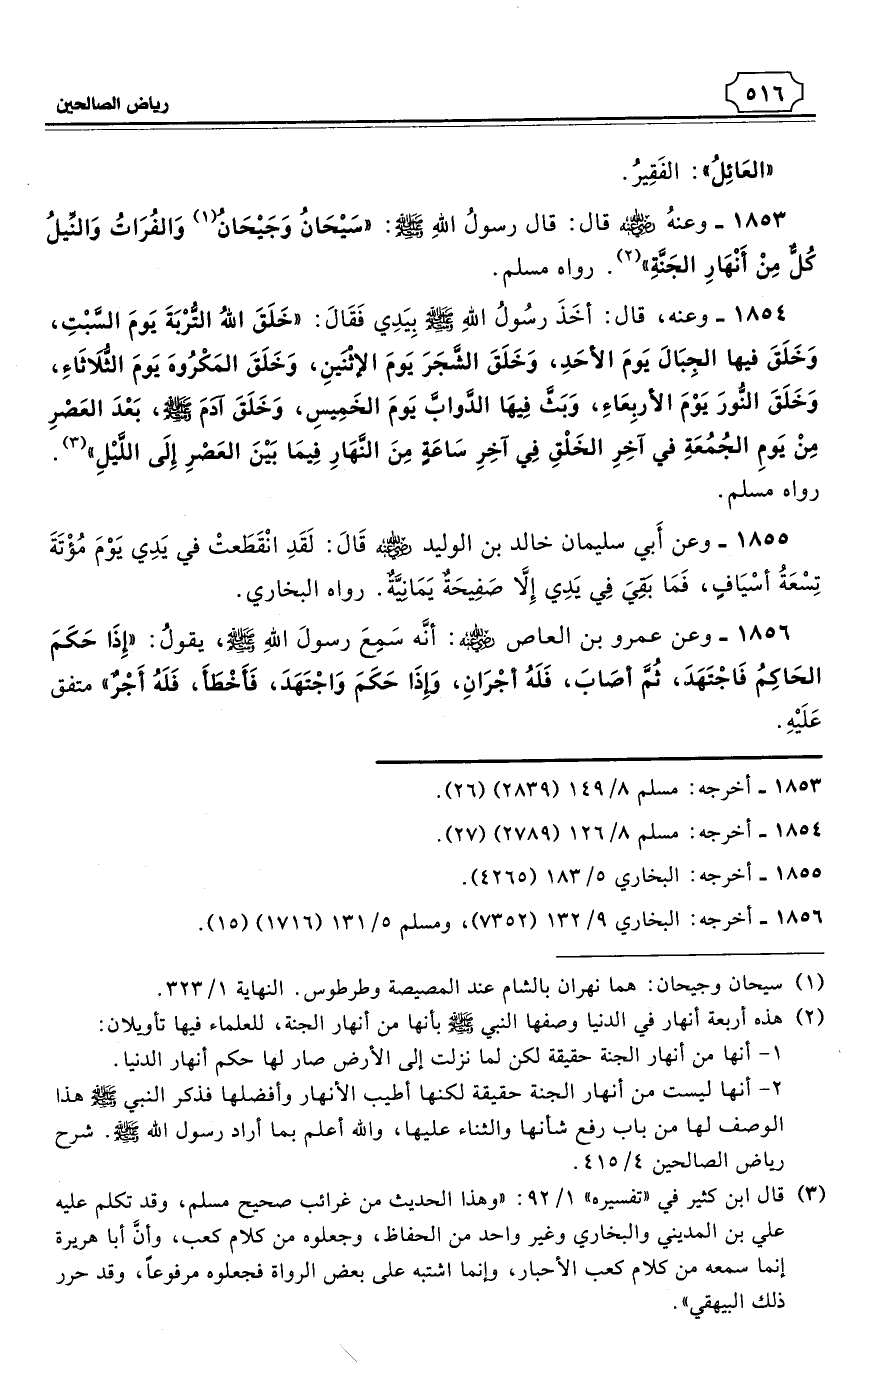 ٥١٦
رياض الصالحين
«العَائِلُ»: الفَقِيرُ.
١٨٥٣ ـ وعنهُ رضي الله عنه قال: قال رسولُ اللهِ ﷺ: «سَيْحَانُ وَجَيْحَانُ(١) وَالفُرَاتُ وَالنِّيلُ
كُلٌّ مِنْ أَنْهَارِ الجَنَّةِ»(٢). رواه مسلم.
١٨٥٤ ـ وعنه، قال: أخَذَ رسُولُ اللهِ ﷺ بِيَدِي فَقَالَ: «خَلَقَ اللهُ التُّرْبَةَ يَومَ السَّبْتِ،
وَخَلَقَ فيها الجِبَالَ يَومَ الأحَدِ، وَخَلَقَ الشَّجَرَ يَومَ الإثْنَينِ، وَخَلَقَ المَكْرُوهَ يَومَ الثُّلَاثَاءِ،
وَخَلَقَ النُّورَ يَوْمَ الأربِعَاءِ، وَبَثَّ فِيهَا الدَّوابَّ يَومَ الخَمِيسِ، وَخَلَقَ آدَمَ ﷺ، بَعْدَ العَصْرِ
مِنْ يَومِ الجُمُعَةِ في آخِرِ الخَلْقِ فِي آخِرِ سَاعَةٍ مِنَ النَّهَارِ فِيمَا بَيْنَ العَصْرِ إِلَى اللَّيْلِ»(٣).
رواه مسلم.
١٨٥٥ ـ وعن أَبي سليمان خالد بن الوليد رضي الله عنه قَالَ: لَقَدِ انْقَطَعتْ في يَدِي يَوْمَ مُؤْتَةَ
تِسْعَةُ أسْيَافٍ، فَمَا بَقِيَ فِي يَدِي إلَّا صَفِيحَةٌ يَمَانِيَّةٌ. رواه البخاري.
١٨٥٦ ـ وعن عمرو بن العاص رضي الله عنه: أنَّه سَمِعَ رسولَ اللهِ ﷺ، يقولُ: «إِذَا حَكَمَ
الحَاكِمُ فَاجْتَهَدَ، ثُمَّ أصَابَ، فَلَهُ أجْرَانِ، وَإِذَا حَكَمَ وَاجْتَهَدَ، فَأَخْطَأَ، فَلَهُ أَجْرٌ» متفق
عَلَيْهِ.
١٨٥٣ ـ أخرجه: مسلم ٨/ ١٤٩ (٢٨٣٩) (٢٦).
١٨٥٤ ـ أخرجه: مسلم ٨/ ١٢٦ (٢٧٨٩) (٢٧).
١٨٥٥ ـ أخرجه: البخاري ٥/ ١٨٣ (٤٢٦٥).
١٨٥٦ ـ أخرجه: البخاري ٩/ ١٣٢ (٧٣٥٢)، ومسلم ٥/ ١٣١ (١٧١٦) (١٥).
(١) سيحان وجيحان: هما نهران بالشام عند المصيصة وطرطوس. النهاية ١/ ٣٢٣.
(٢) هذه أربعة أنهار في الدنيا وصفها النبي ﷺ بأنها من أنهار الجنة، للعلماء فيها تأويلان:
١- أنها من أنهار الجنة حقيقة لكن لما نزلت إلى الأرض صار لها حكم أنهار الدنيا.
٢- أنها ليست من أنهار الجنة حقيقة لكنها أطيب الأنهار وأفضلها فذكر النبي ﷺ هذا
الوصف لها من باب رفع شأنها والثناء عليها، والله أعلم بما أراد رسول الله ﷺ. شرح
رياض الصالحين ٤/ ٤١٥.
(٣) قال ابن كثير في «تفسيره» ١/ ٩٢: «وهذا الحديث من غرائب صحيح مسلم، وقد تكلم عليه
علي بن المديني والبخاري وغير واحد من الحفاظ، وجعلوه من كلام كعب، وأنَّ أبا هريرة
إنما سمعه من كلام كعب الأحبار، وإنما اشتبه على بعض الرواة فجعلوه مرفوعاً، وقد حرر
ذلك البيهقي».